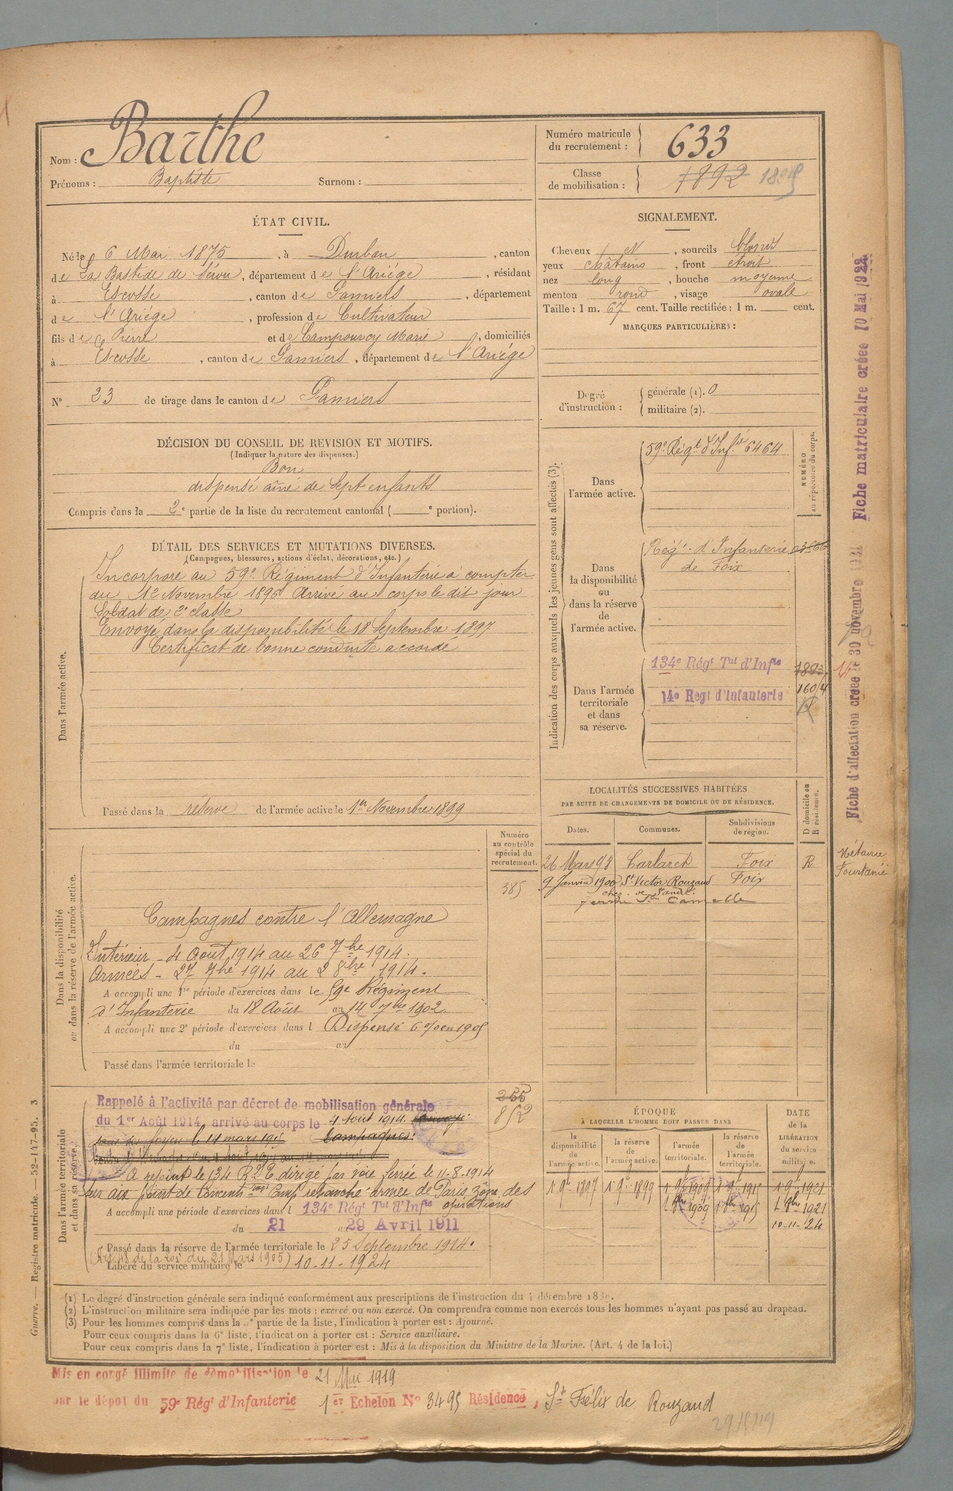 Nom : Barthe
Prénoms : Baptiste Surnom :
Numéro matricule du recrutement : 633
Classe de mobilisation : 1892
ÉTAT CIVIL.
Né le 6 Mai 1875, à Durban, canton
de La Bastide de Sérou, département de l'Ariège, résidant
à Escosse, canton de Pamiers, département
de l'Ariège, profession de Cultivateur
fils de Pierre et de Marie, domiciliés
à Escosse, canton de Pamiers, département de l'Ariège
N° 23 de tirage dans le canton de Pamiers
SIGNALEMENT.
Cheveux N, sourcils blonds
yeux châtains, front étroit
nez long, bouche moyenne
menton rond, visage ovale
Taille : 1 m. 67 cent. Taille rectifiée : 1 m. cent.
MARQUES PARTICULIÈRES :
Degré d'instruction : générale (1). 0
militaire (2).
DÉCISION DU CONSEIL DE REVISION ET MOTIFS.
(Indiquer la nature des dispenses.)
Bon
dispensé aîné de sept enfants
Compris dans la 2e partie de la liste du recrutement cantonal ( e portion).
DÉTAIL DES SERVICES ET MUTATIONS DIVERSES.
(Campagnes, blessures, actions d'éclat, décorations, etc.)
Dans l'armée active.
Incorporé au 59e Régiment d'Infanterie à compter
du 1er Novembre 1896 Arrivé au corps le dit jour
Soldat de 2e classe
Envoyé dans la disponibilité le 18 Septembre 1897
Certificat de bonne conduite accordé
Passé dans la réserve de l'armée active le 1er Novembre 1899
Indication des corps auxquels les jeunes gens sont affectés (3).
NUMÉRO au répertoire du corps.
Dans l'armée active.
59e Régt d'Infie 6464
Dans la disponibilité ou dans la réserve de l'armée active.
Régt d'Infanterie
de Foix
Dans l'armée territoriale et dans sa réserve.
134e Régt Tal d'Infie
14e Regt d'Infanterie
LOCALITÉS SUCCESSIVES HABITÉES
PAR SUITE DE CHANGEMENTS DE DOMICILE OU DE RÉSIDENCE.
Dates. Communes. Subdivisions de région. D domicile ou R résidence.
26 Mars 98 Carlaret Foix R
9 Janvier 1900 St Victor Rouzaud Foix
Métairie
Numéro au contrôle spécial du recrutement.
385
Dans la disponibilité ou dans la réserve de l'armée active.
Campagnes contre l'Allemagne
Intérieur - 4 Août 1914 au 26 7bre 1914.
Armées - 27 7bre 1914 au 2 8bre 1914.
A accompli une 1re période d'exercices dans le 59e Régiment
d'Infanterie du 18 Août au 14 7bre 1902
A accompli une 2e période d'exercices dans l Dispensé
du au
Passé dans l'armée territoriale le
Dans l'armée territoriale et dans sa réserve.
852
Rappelé à l'activité par décret de mobilisation générale
du 1er Août 1914, arrivé au corps le 4 Août 1914.
A rejoint le 134 dirigé par voie ferrée le 11-8-1914
armée de Paris, zône des
opérations
A accompli une période d'exercices dans l 134e Régt Tal d'Infie
du 21 au 29 Avril 1911
Passé dans la réserve de l'armée territoriale le 25 Septembre 1914.
Libéré du service militaire le 10-11-1924
ÉPOQUE
À LAQUELLE L'HOMME DOIT PASSER DANS
la disponibilité de l'armée active. la réserve de l'armée active. l'armée territoriale. la réserve de l'armée territoriale.
DATE de la LIBÉRATION du service militaire.
10-11-24
(1) Le degré d'instruction générale sera indiqué conformément aux prescriptions de l'instruction du 4 décembre 1889.
(2) L'instruction militaire sera indiquée par les mots : exercé ou non exercé. On comprendra comme non exercés tous les hommes n'ayant pas passé au drapeau.
(3) Pour les hommes compris dans la 5e partie de la liste, l'indication à porter est : Ajourné.
Pour ceux compris dans la 6e liste, l'indication à porter est : Service auxiliaire.
Pour ceux compris dans la 7e liste, l'indication à porter est : Mis à la disposition du Ministre de la Marine. (Art. 4 de la loi.)
Mis en congé illimité de démobilisation le 21 Mai 1919
par le dépôt du 59e Régt d'Infanterie 1er Echelon N° 3495 Résidence, St Félix de Rouzaud
Guerre. — Registre matricule. — 52-147-95. 3
Fiche d'affectation créée le 30 novembre
Fiche matriculaire créée 10 Mai 1922